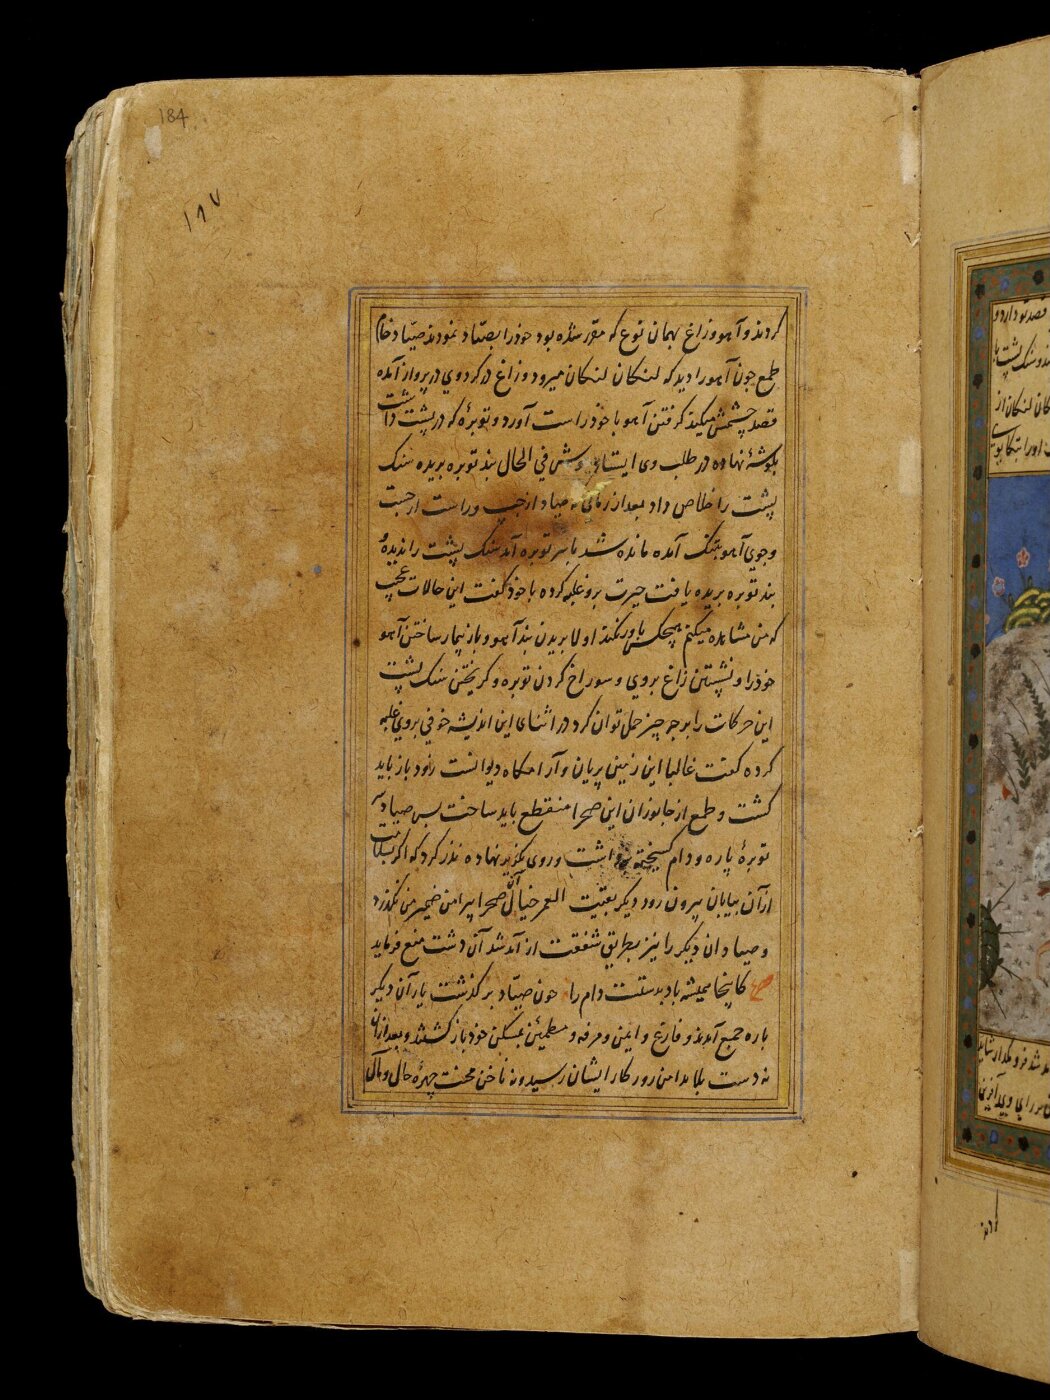 184
۱۸۷
کردند و آهو و زاغ بهمان نوع که مقرر شده بود خودرا بصیاد نمودند صیاد خام
طمع چون آهو را دید که لنکان لنکان میرود و زاغ در کرد وی در پرواز آمده
قصد چشمش میکند کرفتن آهو با خود راست آورد و توبرهٔ که در پشت داشت
بکوشهٔ نهاده در طلب وی ایستاد موش فی الحال بند توبره بریده سنک
پشت را خلاص داد بعد از زمانی که صیاد از چپ و راست از جست
و جوی آهو بتنک آمده مانده شد با سر توبره آمد سنک پشت را ندیده و
بند توبره بریده یافت حیرت برو غلبه کرده با خود کفت این حالات عجب
که من مشاهده میکنم هیچکس باور نکند اولا بریدن بند آهو و باز بیمار ساختن آهو
خودرا و نشستن زاغ بروی و سوراخ کردن توبره و کریختن سنک پشت
این حرکات را بر چه چیز حمل توان کرد در اثنای این اندیشه خوفی بروی غلبه
کرده کفت غالبا این زمین پریان و آرامکاه دیوانست زود باز باید
کشت و طمع از جانوران این صحرا منقطع باید ساخت پس صیاد
توبرهٔ پاره و دام کسیخته برداشت و روی بکریز نهاده نذر کرد که اکر بسلامت
از آن بیابان بیرون رود دیکر بقیت العمر خیال آن صحرا پیرامن ضمیر من نکذرد
و صیادان دیکر را نیز بطریق شفقت از آمد شد آن دشت منع فرماید
ع کاینجا همیشه باد بدستست دام را چون صیاد بر کذشت یاران دیکر
باره جمع آمدند و فارغ و ایمن و مرفه و مطمئن بمسکن خود باز کشتند و بعد ازان
نه دست بلا بدامن روزکار ایشان رسید و نه ناخن محنت چهرهٔ حال و مآل
قصد تو دارد و